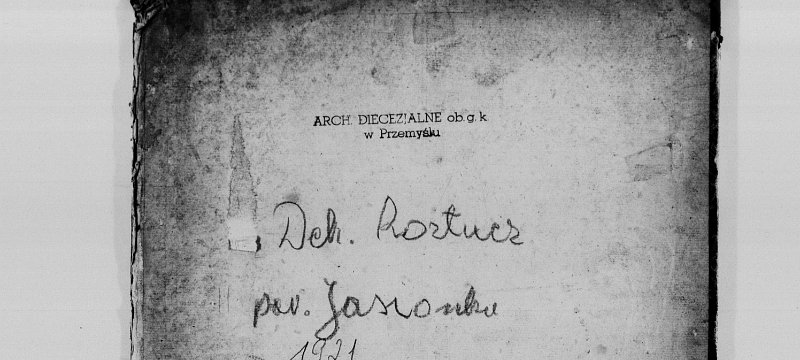 ARCH. DIECEZJALNE ob. g. k.
w Przemyślu
Dek. Roztucz
pow. Jasionka
1921